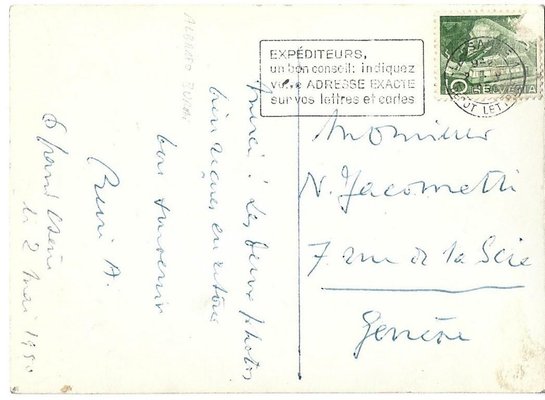 EXPÉDITEURS,
un bon conseil: indiquez
votre ADRESSE EXACTE
sur vos lettres et cartes
HELVETIA
Monsieur
N. Jacometti
7 rue de la Scie
Genève
Merci! Les deux photos
bien reçues,
bon souvenir
A.
le 2 mai 1950